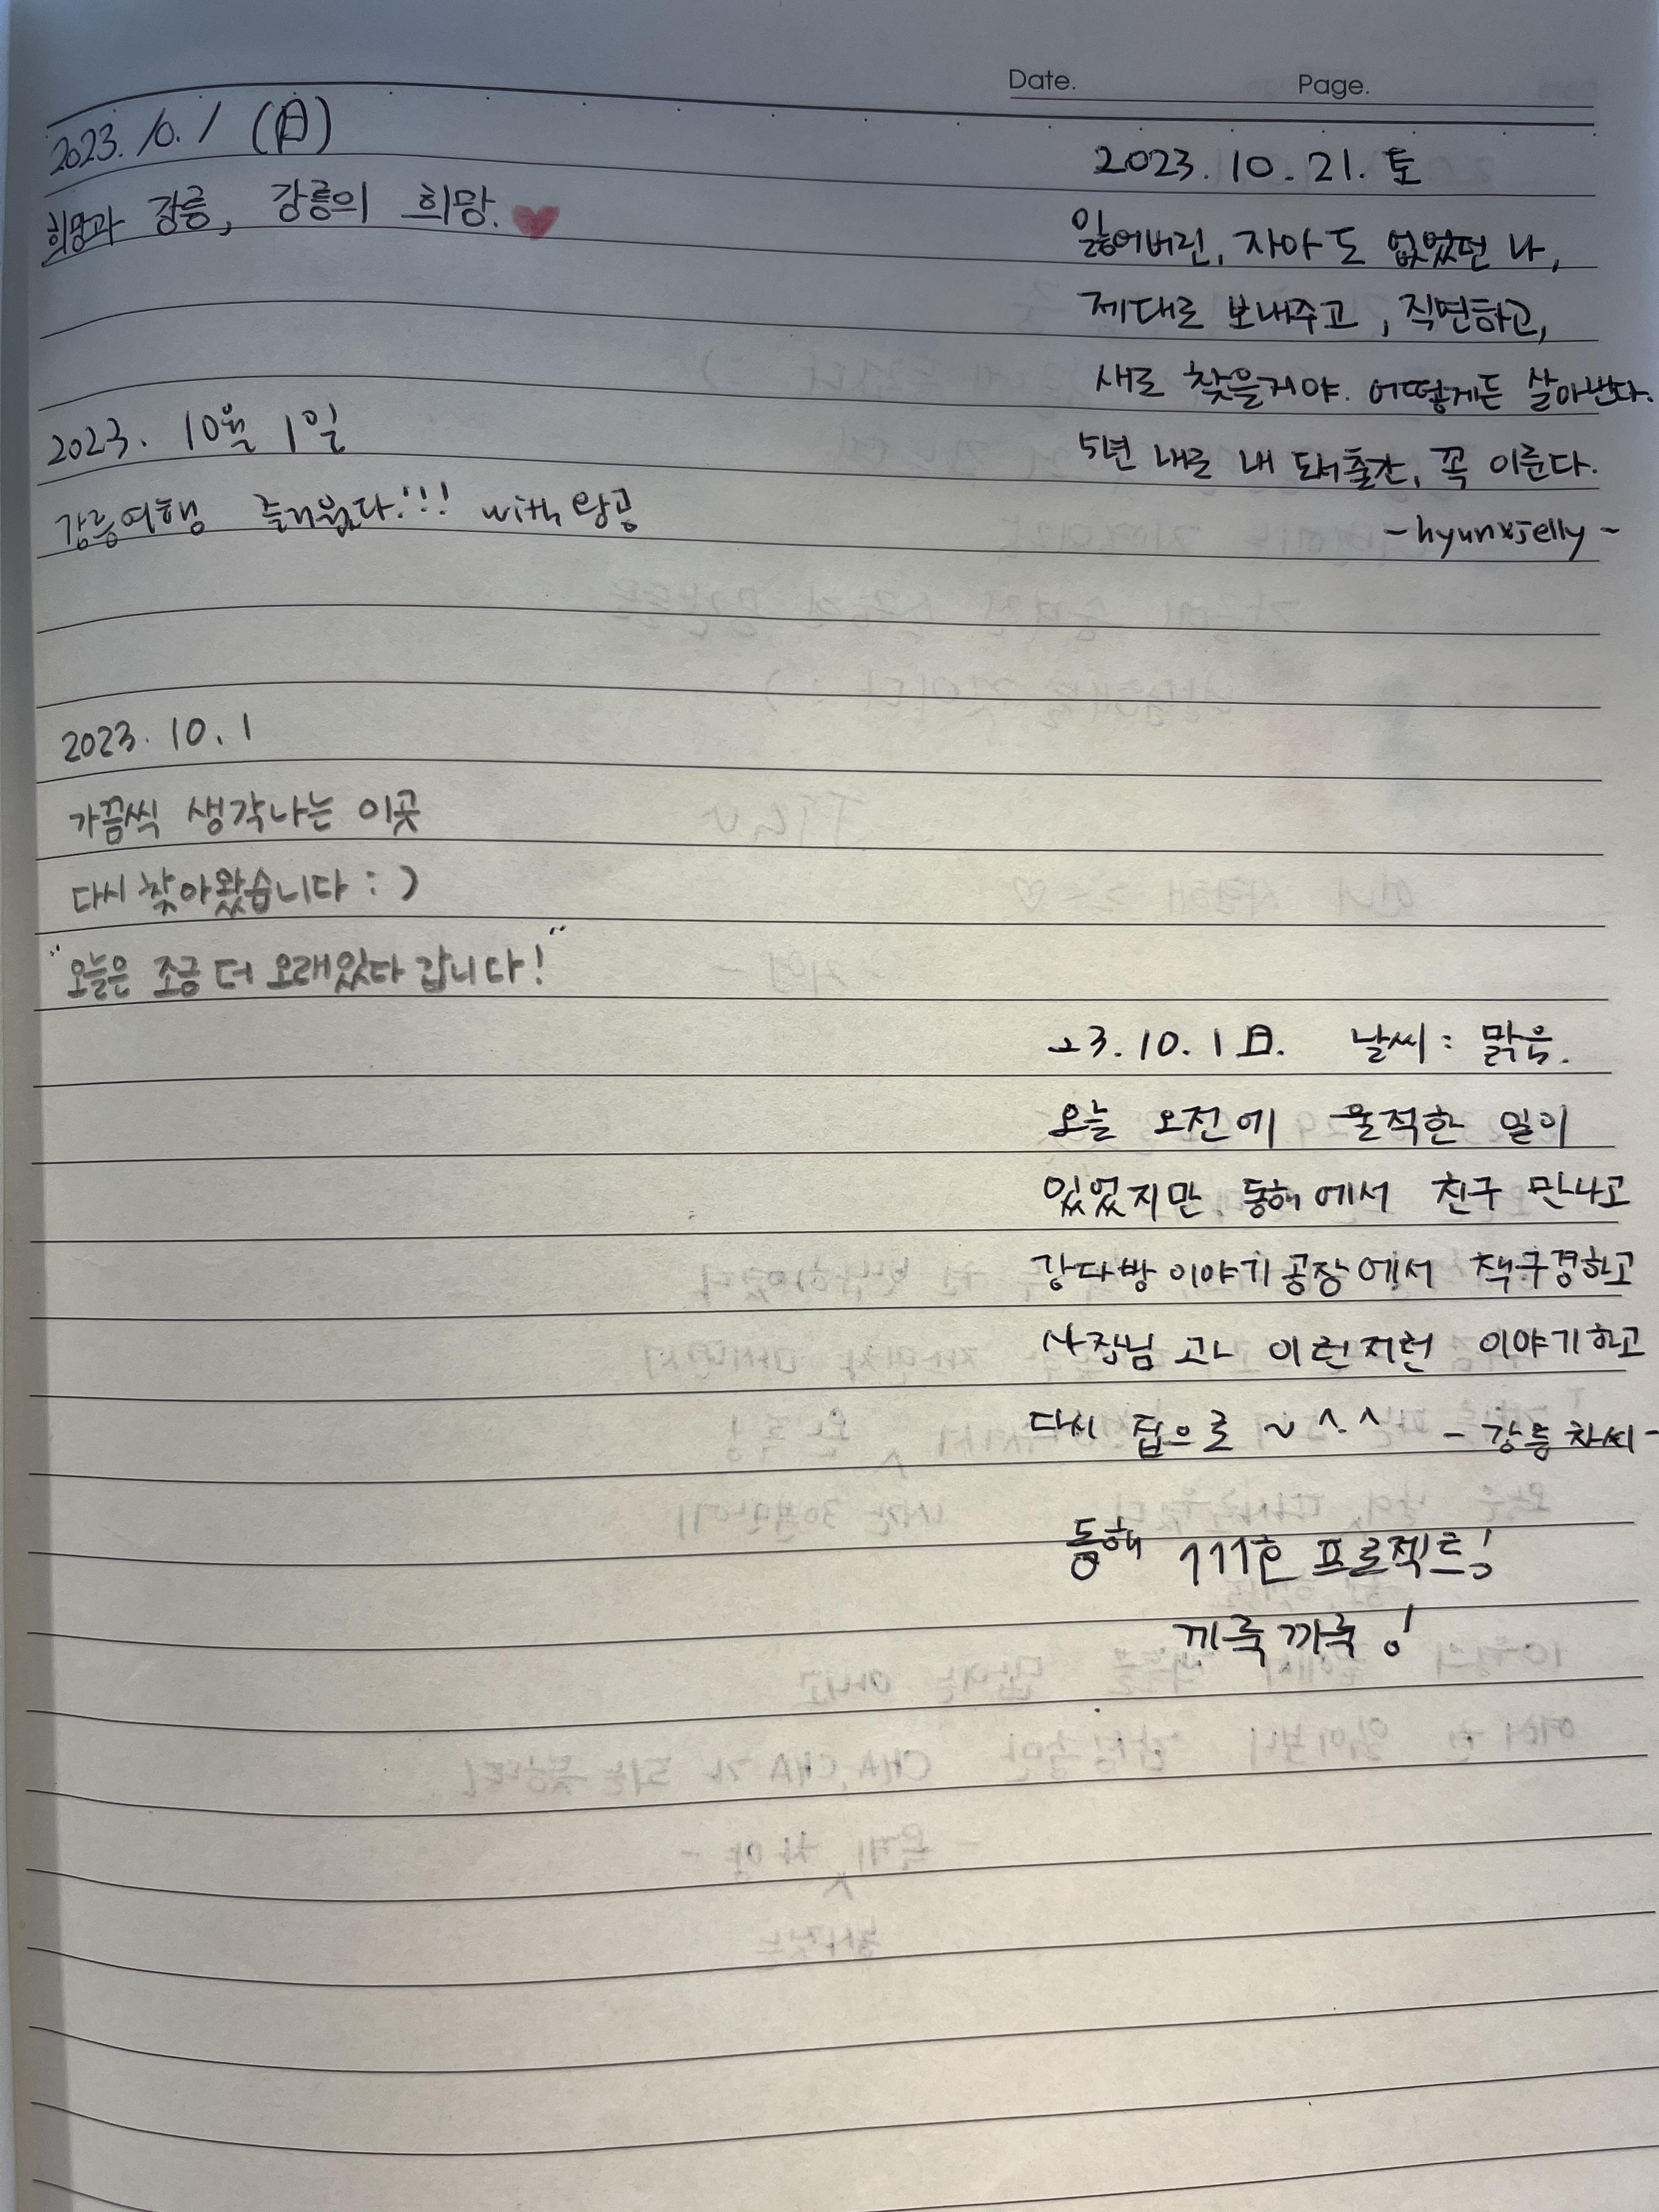 Date. Page.
2023. 10. 1 (日)
희망과 강릉, 강릉의 희망. ♥
2023. 10월 1일
강릉여행 즐거웠다!!! with 왕공
2023. 10. 1
가끔씩 생각나는 이곳
다시 찾아왔습니다 : )
"오늘은 조금 더 오래있다 갑니다!"
2023. 10. 21. 토
잃어버린, 자아도 없었던 나,
제대로 보내주고, 직면하고,
새로 찾을거야. 어떻게든 살아낸다.
5년 내로 내 도서출간, 꼭 이룬다.
- hyunxjelly -
23. 10. 1 日. 날씨 : 맑음.
오늘 오전에 울적한 일이
있었지만, 동해에서 친구 만나고
강다방 이야기공장에서 책구경하고
사장님 고ㅏ 이런저런 이야기하고
다시 집으로 ~ ^^ - 강릉 차씨 -
동해 111호 프로젝트!
끼룩끼룩!